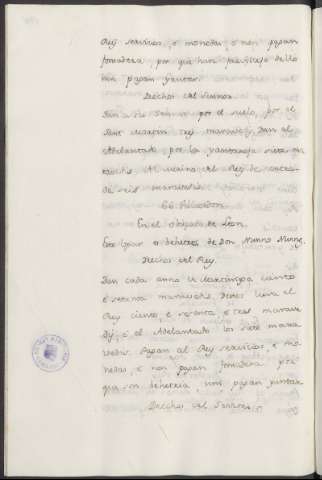 Rey servicios, e monedas, e non pagan
fonsadera por que han previllejo dello
nin pagan yantar.
Derechos del Sennor.
Dan al su Sennor por el suelo, por el
Sant Martin seys maravedis, Dan al
Adelantado por la yantareja siete ma
ravedis Al Merino del Rey de entra-
da seis maravedis.
En el obispado de Leon.
Este logar es behetria de Don Nunno Nunnez
Derechos del Rey.
Dan cada anno de Martiniega ciento
e setenta maravedis, destos lieva el
Rey ciento, e sesenta e tres marave
dis, e el Adelantado los siete mara
vedis. Pagan al Rey servicios, e mo
nedas, e non pagan fonsadera por
que son behetria, nin pagan yantar
Derechos del Sennor